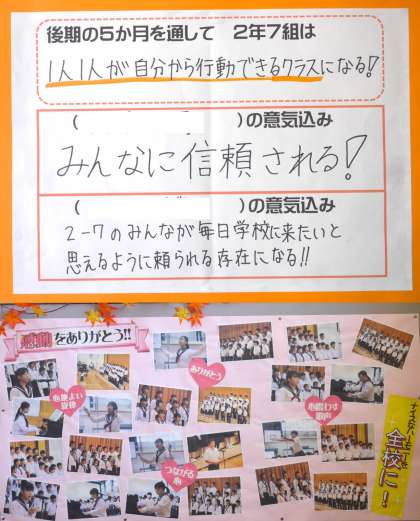 後期の5か月を通して 2年7組は
1人1人が自分から行動できるクラスになる!
( )の意気込み
みんなに信頼される!
( )の意気込み
2-7のみんなが毎日学校に来たいと
思えるように頼られる存在になる!!
感動をありがとう!!
ありがとう
心地よい
旋律
心躍らす
歌声
つながる
心
ナイスなハーモニーを
全校に!